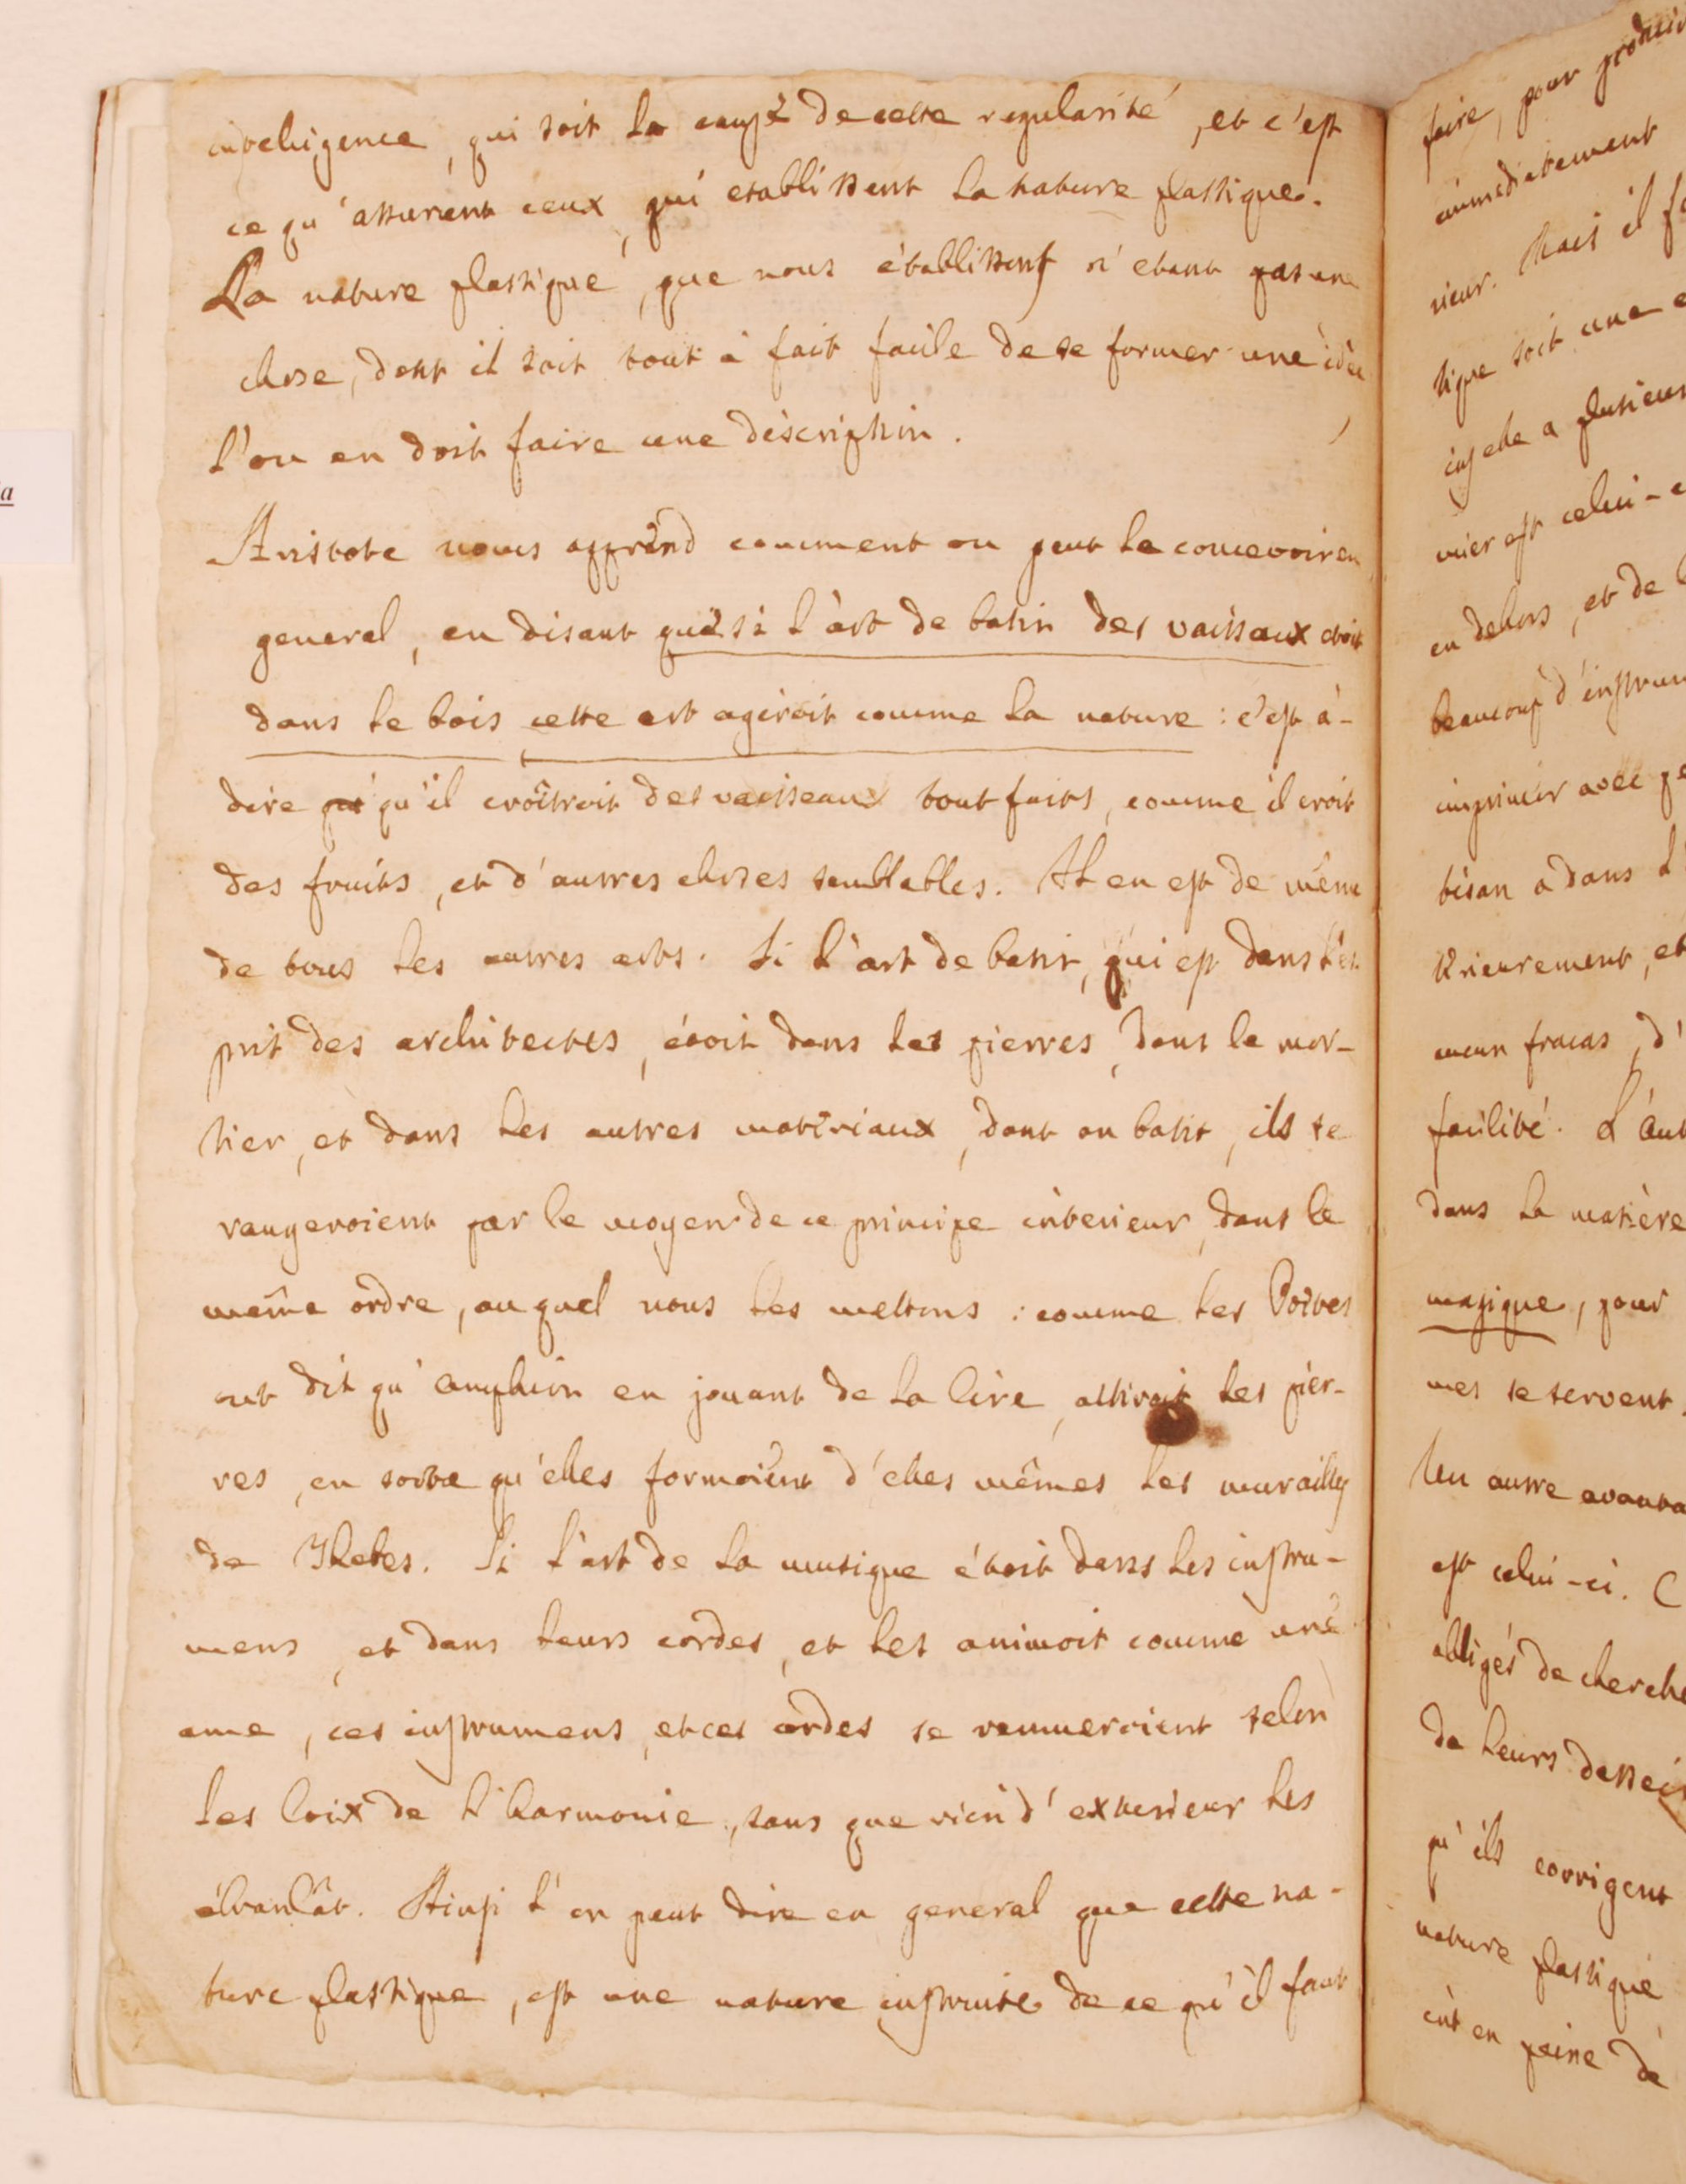 intelligence, qui soit la cause de cette regularité, et c'est
ce qu'assurent ceux, qui etablissent la nature plastique.
La nature plastique, que nous établissons n'etant pas une
chose, dont il soit tout à fait facile de se former une idée
l'on en doit faire une déscription.
Aristote nous apprend comment on peut la concevoir en
general, en disant que si l'art de batir des vaissaux etoit
dans le bois cette art agiroit comme la nature : c'est à-
dire qu'il croîtroit des vaisseaux tout faits, comme il croit
des fruits, et d'autres choses semblables. Il en est de même
de tous les autres arts. Si l'art de batir, qui est dans l'es-
prit des architectes, étoit dans les pierres, dans le mor-
tier, et dans les autres matériaux, dont on batit, ils se
rangeroient par le moyen de ce principe intérieur, dans le
même ordre, auquel nous les mettons : comme les Poëtes
ont dit qu'Amphion en jouant de la lire, attiroit les pier-
res, en sorte qu'elles formoient d'elles mêmes les murailles
de Thebes. Si l'art de la musique étoit dans les instru-
mens, et dans leurs cordes, et les animoit comme une
ame, ces instrumens, et ces cordes se remueroient selon
les loix de l'harmonie, sans que rien d'exterieur les
ébranlât. Ainsi l'on peut dire en general que cette na-
ture plastique, est une nature instruite de ce qu'il faut
faire, pour produir
immediatement
rieur. Mais il fa
tique soit une
ins elle a plusieurs
mier est celui-c
en dehors, et de l
beaucoup d'instrum
imprimer avec pe
tisan a dans l'
térieurement, et
aucun fracas, d'
facilité. L'aut
dans la matière
magique, pour
mes se servent.
Un autre avanta
est celui-ci. C
obligés de cherche
de leurs dessei
qu'ils corrigent
nature plastique
en peine de